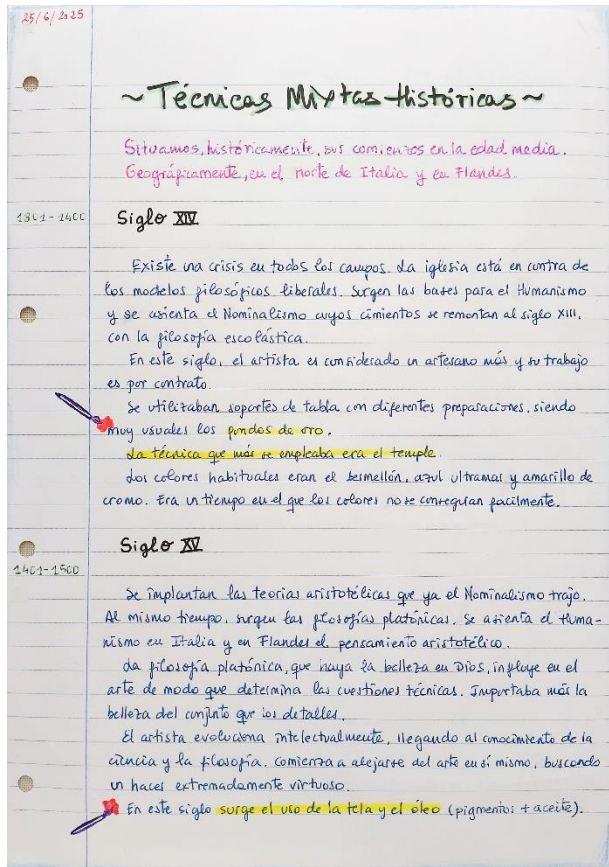 25/6/2025
~Técnicas Mixtas Históricas~
Situamos, históricamente, sus comienzos en la edad media.
Geográficamente, en el norte de Italia y en Flandes.
1301-1400
Siglo XIV
Existe una crisis en todos los campos. La iglesia está en contra de
los modelos filosóficos liberales. Surgen las bases para el Humanismo
y se asienta el Nominalismo cuyos cimientos se remontan al siglo XIII,
con la filosofía escolástica.
En este siglo, el artista es considerado un artesano más y su trabajo
es por contrato.
Se utilizaban soportes de tabla con diferentes preparaciones, siendo
muy usuales los fondos de oro.
La técnica que más se empleaba era el temple.
Los colores habituales eran el bermellón, azul ultramar y amarillo de
cromo. Era un tiempo en el que los colores no se conseguían facilmente.
Siglo XV
1401-1500
Se implantan las teorías aristotélicas que ya el Nominalismo trajo.
Al mismo tiempo, surgen las filosofías platónicas. Se asienta el Huma-
nismo en Italia y en Flandes el pensamiento aristotélico.
La filosofía platónica, que haya la belleza en Dios, influye en el
arte de modo que determina las cuestiones técnicas. Importaba más la
belleza del conjunto que los detalles.
El artista evoluciona intelectualmente, llegando al conocimiento de la
ciencia y la filosofía. Comienza a alejarse del arte en sí mismo, buscando
un haces extremadamente virtuoso.
En este siglo surge el uso de la tela y el óleo (pigmentos + aceite).